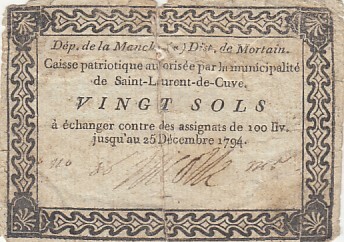 Dép. de la Manche Dist. de Mortain.
Caisse patriotique autorisée par la municipalité
de Saint-Laurent-de-Cuve.
VINGT SOLS
à échanger contre des assignats de 100 liv.
jusqu'au 25 Décembre 1794.